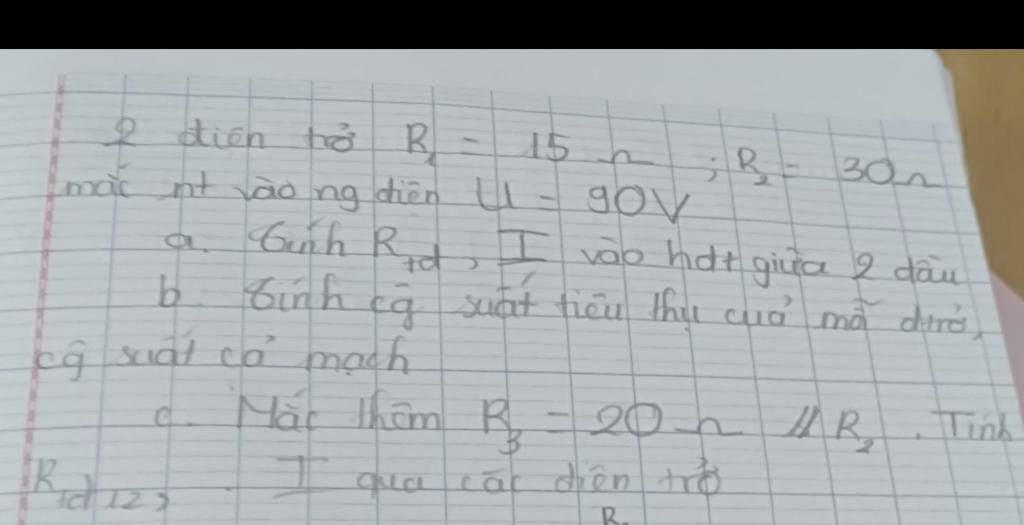 2 điện trở R₁ = 15 Ω ; R₂ = 30Ω
mắc nt vào ng điện U = 90V
a. Tính Rtđ, I vào hđt giữa 2 đầu
b. Tính cg suất tiêu thụ của mỗ đtrở,
cg suất cả mạch
c. Mắc thêm R₃ = 20 Ω // R₂. Tính
Rtđ 123. I qua các điện trở
R